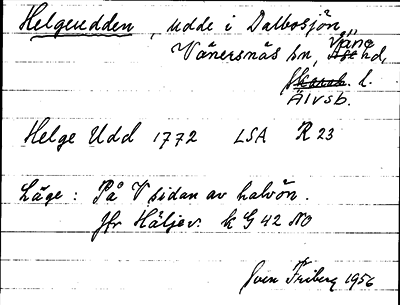 Helgeudden, udde i Dalbosjön,
Vänersnäs sn, Väne hd,
Skarab. l.
Älvsb.
Helge Udd 1772 LSA R 23
Läge: På V sidan av halvön.
Jfr Häljev. k G 42 NO
Sven Friberg 1956